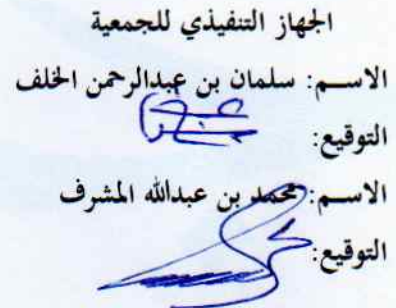 الجهاز التنفيذي للجمعية
الاســم: سلمان بن عبدالرحمن الخلف
التوقيع:
الاســم: محمد بن عبدالله المشرف
التوقيع: